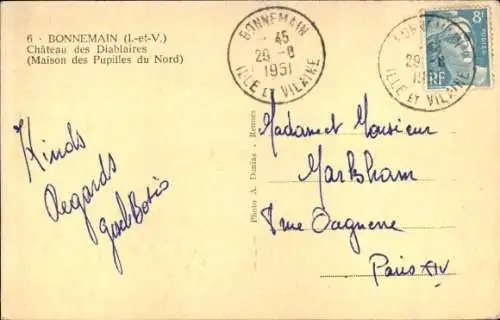 6 - BONNEMAIN (I.-et-V.)
Château des Diablaires
(Maison des Pupilles du Nord)
BONNEMAIN
45
29-8
1951
ILLE ET VILAINE
8F
POSTES
RF
BONNEMAIN
29
ILLE ET VILAINE
Kinds
Regards
Photo A. Danias - Rennes
Madame et Monsieur
Marksham
rue
Paris XIV